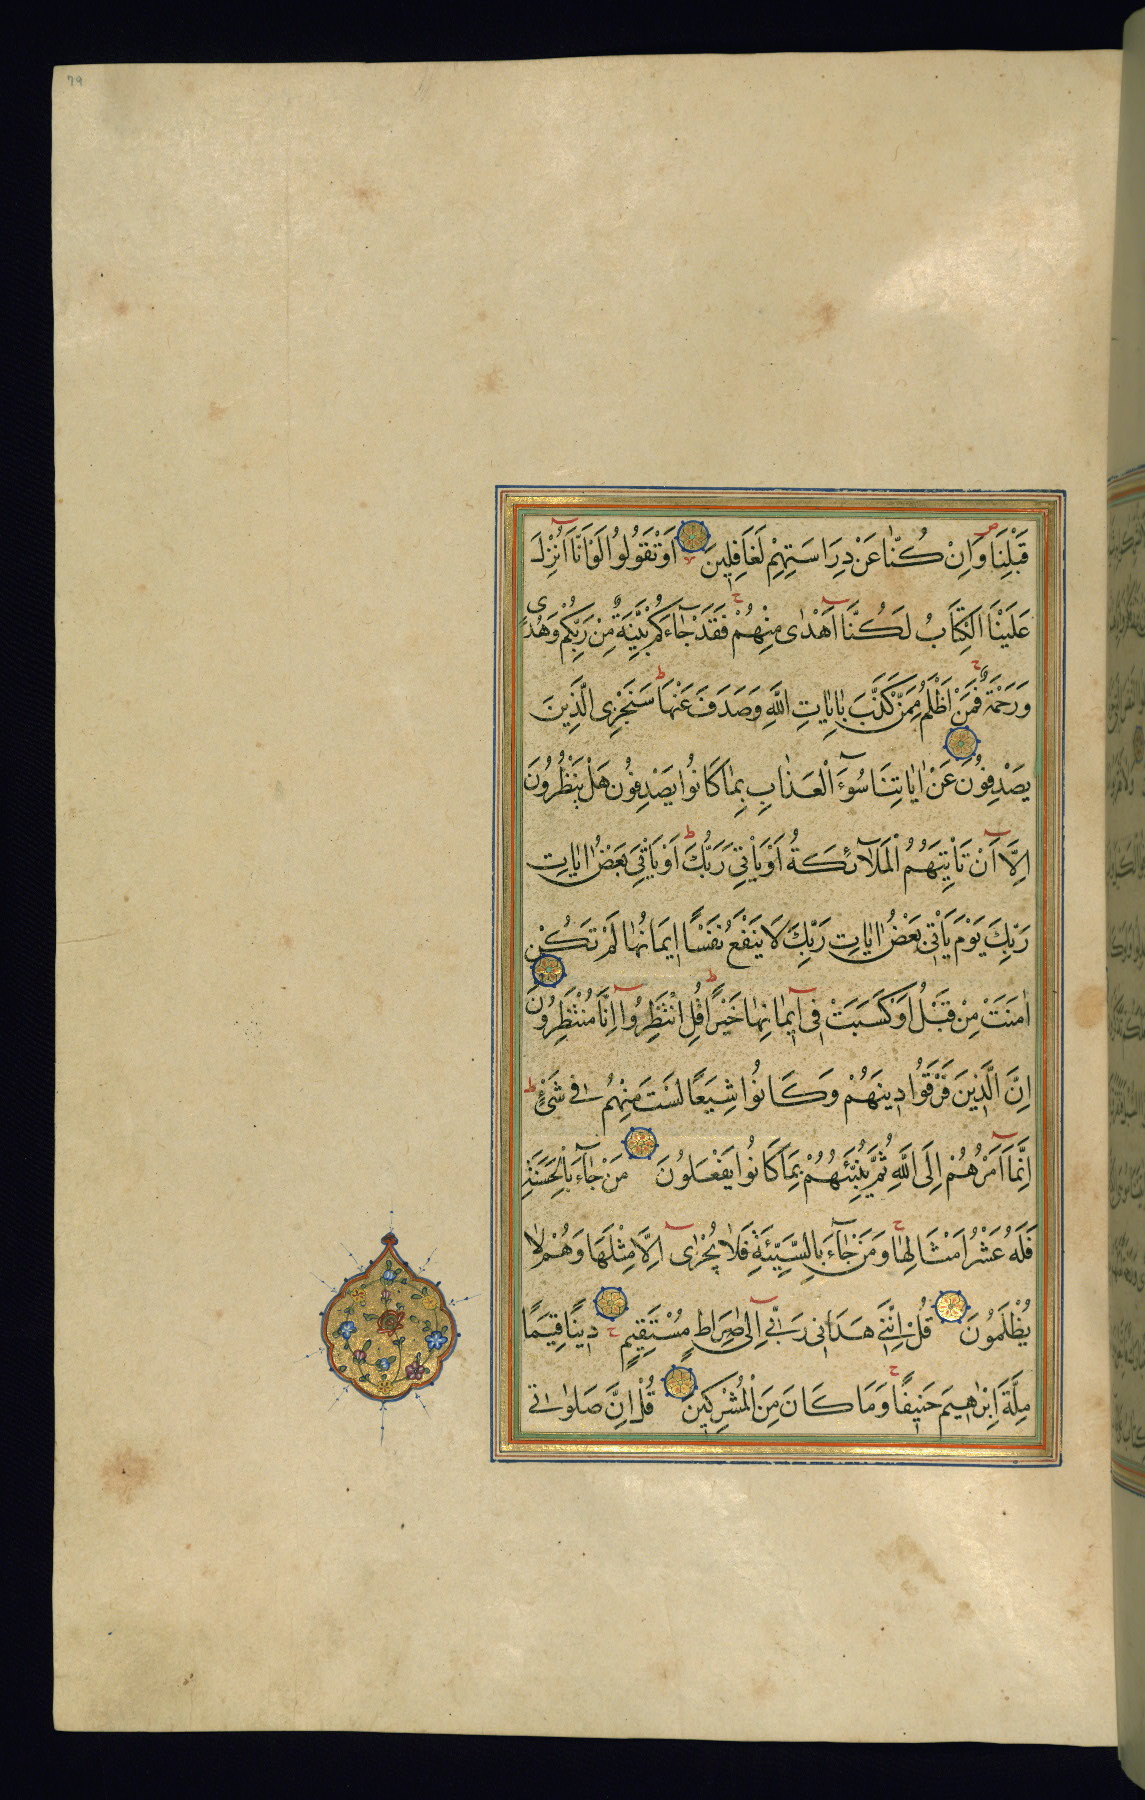 79
قَبْلِنَا وَاِنْ كُنَّا عَنْ دِرَاسَتِهِمْ لَغَافِلِينَ اَوْ تَقُولُوا لَوْ اَنَّا اُنْزِلَ
عَلَيْنَا الْكِتَابُ لَكُنَّا اَهْدٰى مِنْهُمْ فَقَدْ جَاءَكُمْ بَيِّنَةٌ مِنْ رَبِّكُمْ وَهُدًى
وَرَحْمَةٌ فَمَنْ اَظْلَمُ مِمَّنْ كَذَّبَ بِاٰيَاتِ اللّٰهِ وَصَدَفَ عَنْهَا سَنَجْزِى الَّذِينَ
يَصْدِفُونَ عَنْ اٰيَاتِنَا سُوٓءَ الْعَذَابِ بِمَا كَانُوا يَصْدِفُونَ هَلْ يَنْظُرُونَ
اِلَّا اَنْ تَأْتِيَهُمُ الْمَلَآئِكَةُ اَوْ يَأْتِىَ رَبُّكَ اَوْ يَأْتِىَ بَعْضُ اٰيَاتِ
رَبِّكَ يَوْمَ يَأْتِى بَعْضُ اٰيَاتِ رَبِّكَ لَا يَنْفَعُ نَفْسًا اِيمَانُهَا لَمْ تَكُنْ
اٰمَنَتْ مِنْ قَبْلُ اَوْ كَسَبَتْ فِى اِيمَانِهَا خَيْرًا قُلِ انْتَظِرُوا اِنَّا مُنْتَظِرُونَ
اِنَّ الَّذِينَ فَرَّقُوا دِينَهُمْ وَكَانُوا شِيَعًا لَسْتَ مِنْهُمْ فِى شَىْءٍ
اِنَّمَا اَمْرُهُمْ اِلَى اللّٰهِ ثُمَّ يُنَبِّئُهُمْ بِمَا كَانُوا يَفْعَلُونَ مَنْ جَاءَ بِالْحَسَنَةِ
فَلَهُ عَشْرُ اَمْثَالِهَا وَمَنْ جَاءَ بِالسَّيِّئَةِ فَلَا يُجْزٰى اِلَّا مِثْلَهَا وَهُمْ لَا
يُظْلَمُونَ قُلْ اِنَّنِى هَدَانِى رَبِّى اِلٰى صِرَاطٍ مُسْتَقِيمٍ دِينًا قِيَمًا
مِلَّةَ اِبْرٰهِيمَ حَنِيفًا وَمَا كَانَ مِنَ الْمُشْرِكِينَ قُلْ اِنَّ صَلَوٰاتِى